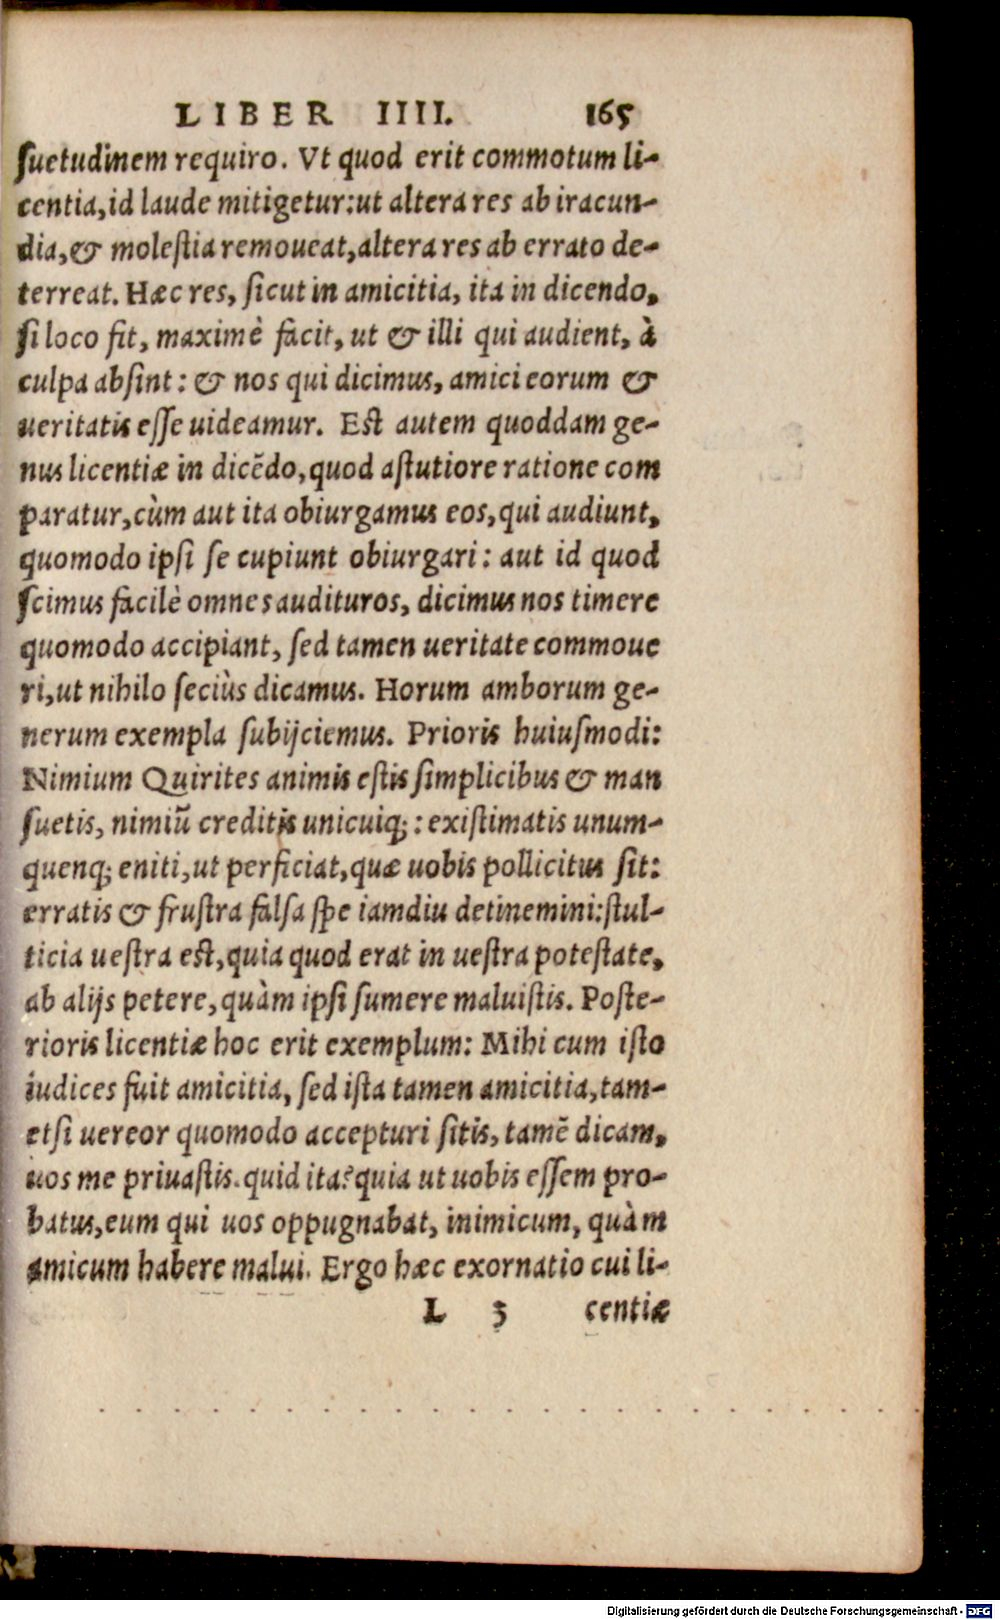 LIBER IIII. 165
ſuetudinem requiro. Vt quod erit commotum li-
centia, id laude mitigetur: ut altera res ab iracun-
dia, & moleſtia remoueat, altera res ab errato de-
terreat. Hæc res, ſicut in amicitia, ita in dicendo,
ſi loco fit, maximè facit, ut & illi qui audient, à
culpa abſint: & nos qui dicimus, amici eorum &
ueritatis eſſe uideamur. Eſt autem quoddam ge-
nus licentiæ in dicẽdo, quod aſtutiore ratione com
paratur, cùm aut ita obiurgamus eos, qui audiunt,
quomodo ipſi ſe cupiunt obiurgari: aut id quod
ſcimus facilè omnes audituros, dicimus nos timere
quomodo accipiant, ſed tamen ueritate commoue
ri, ut nihilo ſeciùs dicamus. Horum amborum ge-
nerum exempla ſubijciemus. Prioris huiuſmodi:
Nimium Quirites animis eſtis ſimplicibus & man
ſuetis, nimiũ creditis unicuiq;: exiſtimatis unum-
quenq; eniti, ut perficiat, quæ uobis pollicitus ſit:
erratis & fruſtra falſa ſpe iamdiu detinemini: ſtul-
ticia ueſtra eſt, quia quod erat in ueſtra poteſtate,
ab alijs petere, quàm ipſi ſumere maluiſtis. Poſte-
rioris licentiæ hoc erit exemplum: Mihi cum iſto
iudices fuit amicitia, ſed iſta tamen amicitia, tam-
etſi uereor quomodo accepturi ſitis, tamẽ dicam,
uos me priuaſtis. quid ita? quia ut uobis eſſem pro-
batus, eum qui uos oppugnabat, inimicum, quàm
amicum habere malui. Ergo hæc exornatio cui li-
L 3 centiæ
Digitalisierung gefördert durch die Deutsche Forschungsgemeinschaft - DFG